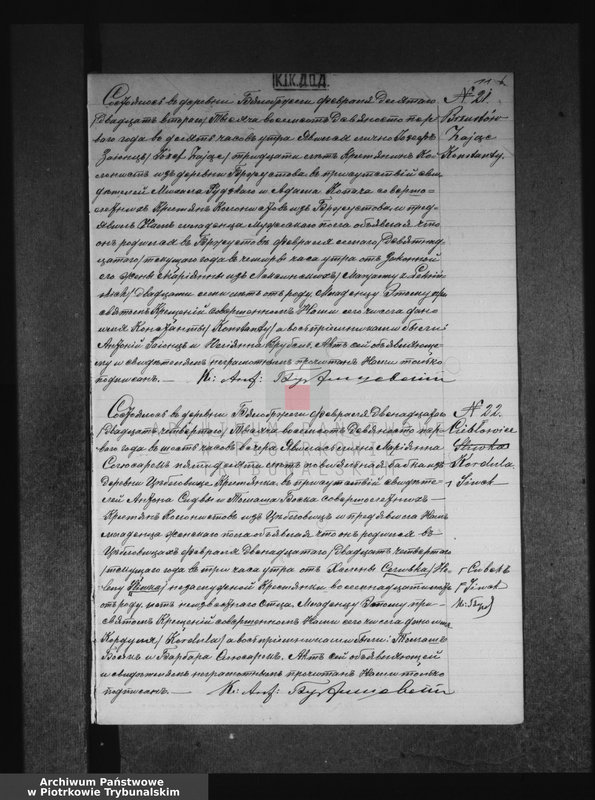 К.К.Д.О.Д.
11
№ 21.
Brzustów
Zając
Konstanty.
Состоялось въ деревни Бялобржеги февраля Десятаго
/Двадцать втораго/ Тысяча восемьсотъ Девяносто пер-
ваго года въ десять часовъ утра. Явился лично Іозефъ
Заіонцъ /Józef Zając/ тридцати лѣтъ Крестьянинъ Ко-
лонистъ изъ деревни Бржустова, въ присутствіи сви-
дѣтелей и Адама совершо-
лѣтнихъ Крестьянъ Колонистовъ изъ Бржустова, и пред-
явилъ Намъ младенца Мужескаго пола объявляя что
онъ родился въ Бржустовѣ февраля седьмаго /Девятнад-
цатаго/ текущаго года въ четыре часа утра отъ законной
его жены Маріянны изъ /Maryanny z
Двадцати семи лѣтъ отъ роду. Младенцу Этому при
святомъ Крещеніи совершенномъ Нами сего числа дано
имя Константы /Konstanty/ а воспріемниками были:
Антоній Заіонцъ и Врубель. Актъ сей объявляюще-
му и свидѣтелямъ неграмотнымъ прочитанъ Нами только
подписанъ. —
№ 22.
Ciebłowice
Kordula
Состоялось въ деревни Бялобржеги февраля Двенадцатаго
/Двадцать четвертаго/ Тысяча восемьсотъ Девяносто пер-
ваго года въ шесть часовъ вечера. Явилась лично Маріянна
пятидесяти лѣтъ повивальная бабка изъ
деревни Цебловице Крестьянка, въ присутствіи свидѣте-
лей Антона и Томаша совершолѣтнихъ —
Крестьянъ Колонистовъ изъ Цебловицъ и предявила Намъ
младенца женскаго пола объявляя что онъ родился въ
Цебловицахъ февраля Двенадцатаго /Двадцать четвертаго/
текущаго года въ три часа утра отъ
незамужной Крестьянки восемнадцати лѣтъ
отъ роду, изъ неизвѣстнаго Отца. Младенцу Этому при
святомъ Крещеніи совершенномъ Нами сего числа дано имя
Кордуля /Kordula/ а воспріемниками были: Томашъ
и Барбара. Актъ сей объявляющей
и свидѣтелямъ неграмотнымъ прочитанъ Нами только
подписанъ. —
Archiwum Państwowe
w Piotrkowie Trybunalskim